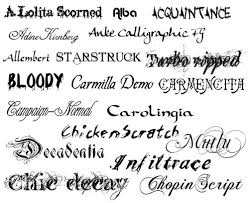 A Lolita Scorned Alba ACQUAINTANCE
Adine Kirnberg Anke Calligraphic FG
Allembert STARSTRUCK Turbo ripped
BLOODY Carmilla Demo CARMENCITA
Campaign-Normal Carolingia
ChickenScratch
Decadentia Muthu
Infiltrace
Chic decay Chopin Script